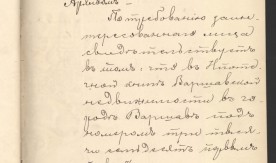 Архивомъ
По требованію заин-
тересованнаго лица
свидѣтельствуетъ
въ томъ, что въ Ипотеч-
ной книгѣ Варшавской
недвижимости въ го-
родѣ Варшавѣ подъ
номеромъ три тыся-
чи семьдесятъ первымъ